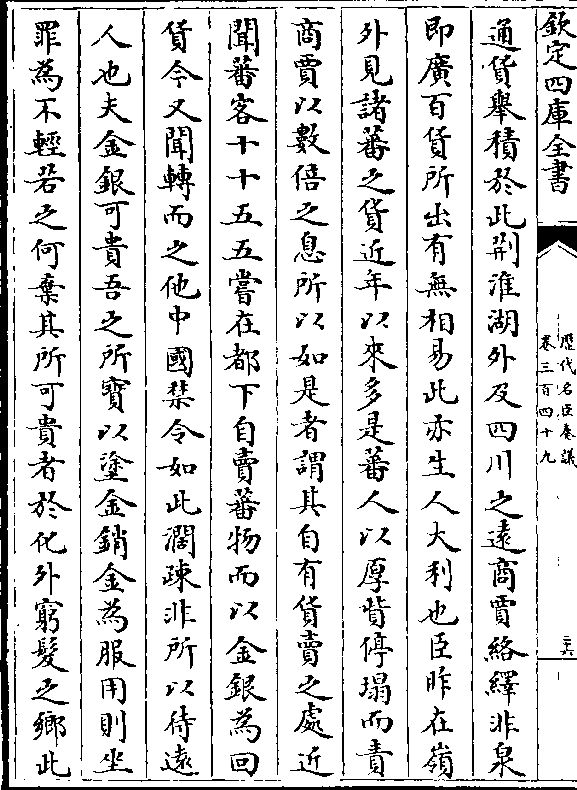 欽定四庫全書
歷代名臣奏議
卷三百四十九
二六
通貨舉積於此荆淮湖外及四川之遠商賈絡繹非泉
即廣百貨所出有無相易此亦生人大利也臣昨在嶺
外見諸蕃之貨近年以來多是蕃人以厚貲停塌而責
商賈以數倍之息所以如是者謂其自有貨賣之處近
聞蕃客十十五五嘗在都下自賣蕃物而以金銀為回
貨今又聞轉而之他中國禁令如此濶疎非所以待遠
人也夫金銀可貴吾之所寶以塗金銷金為服用則坐
罪為不輕若之何棄其所可貴者於化外窮髮之鄉此